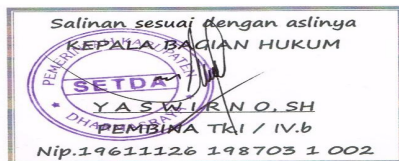 Salinan sesuai dengan aslinya
KEPALA BAGIAN HUKUM
SETDA
YASWIRNO, SH
PEMBINA TkI / IV.b
Nip.19611126 198703 1 002